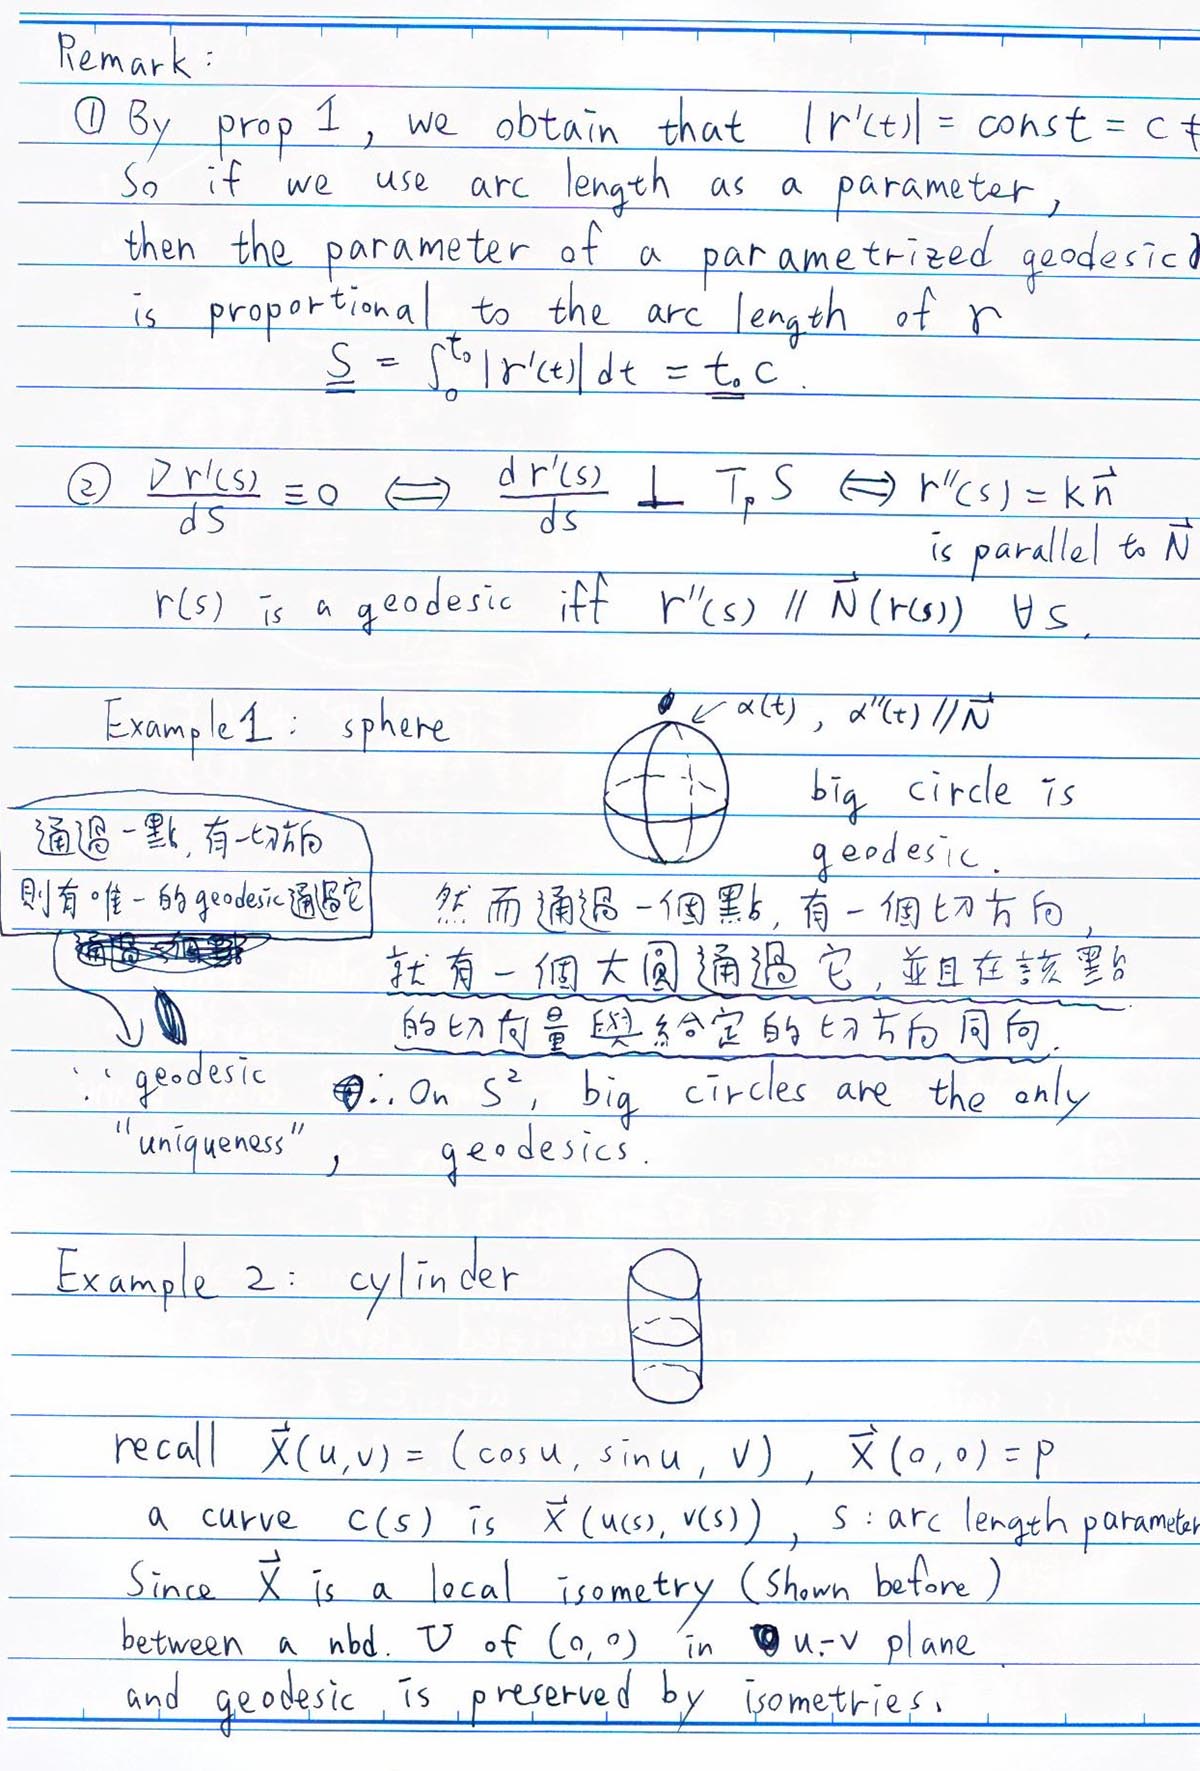 Remark:
① By prop 1, we obtain that |r'(t)| = const = c ≠
So if we use arc length as a parameter,
then the parameter of a parametrized geodesic r
is proportional to the arc length of r
S = ∫₀^{t₀} |r'(t)| dt = t₀ c.
② Dr'(s)/ds ≡ 0 ⟺ dr'(s)/ds ⊥ TₚS ⟺ r''(s) = k n⃗
is parallel to N⃗
r(s) is a geodesic iff r''(s) // N⃗(r(s)) ∀s.
Example 1: sphere
↙ α(t), α''(t) // N⃗
big circle is
geodesic.
通過一點,有一切方向
則有唯一的geodesic通過它
然而通過一個點,有一個切方向,
就有一個大圓通過它,並且在該點
的切向量與給定的切方向同向.
∵ geodesic
"uniqueness",
∴ On S², big circles are the only
geodesics.
Example 2: cylinder
recall X⃗(u,v) = (cosu, sinu, v), X⃗(0,0) = p
a curve c(s) is X⃗(u(s), v(s)), s: arc length parameter
Since X⃗ is a local isometry (shown before)
between a nbd. U of (0,0) in u-v plane
and geodesic is preserved by isometries.